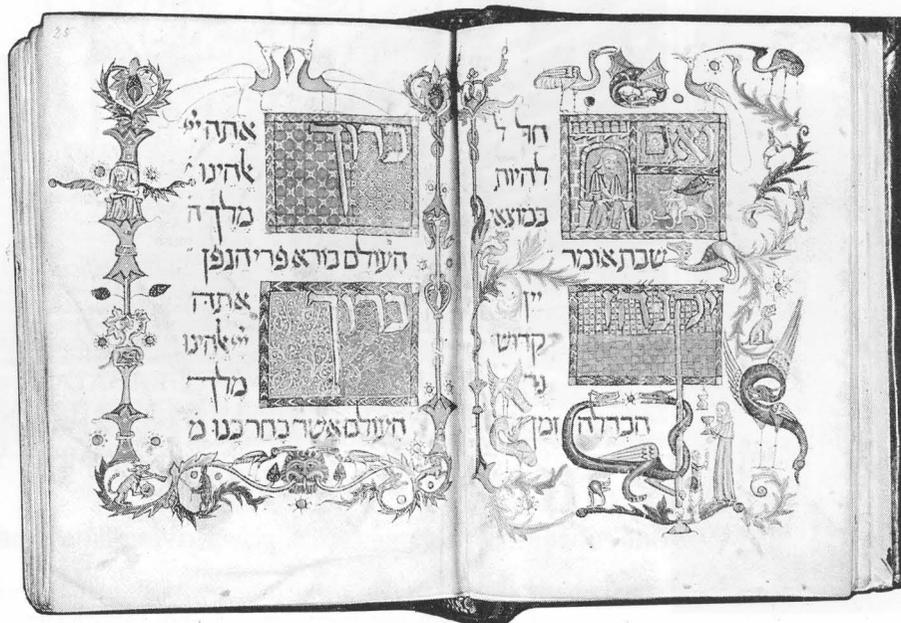 ואם חל ל
להיות
במוצאי
שבת אומר
יקנהז יין
קדוש
נר
הבדלה זמן
25
ברוך אתה יי
אלהינו
מלך ה
העולם בורא פרי הגפן
ברוך אתה
יי אלהינו
מלך
העולם אשר בחר בנו מ